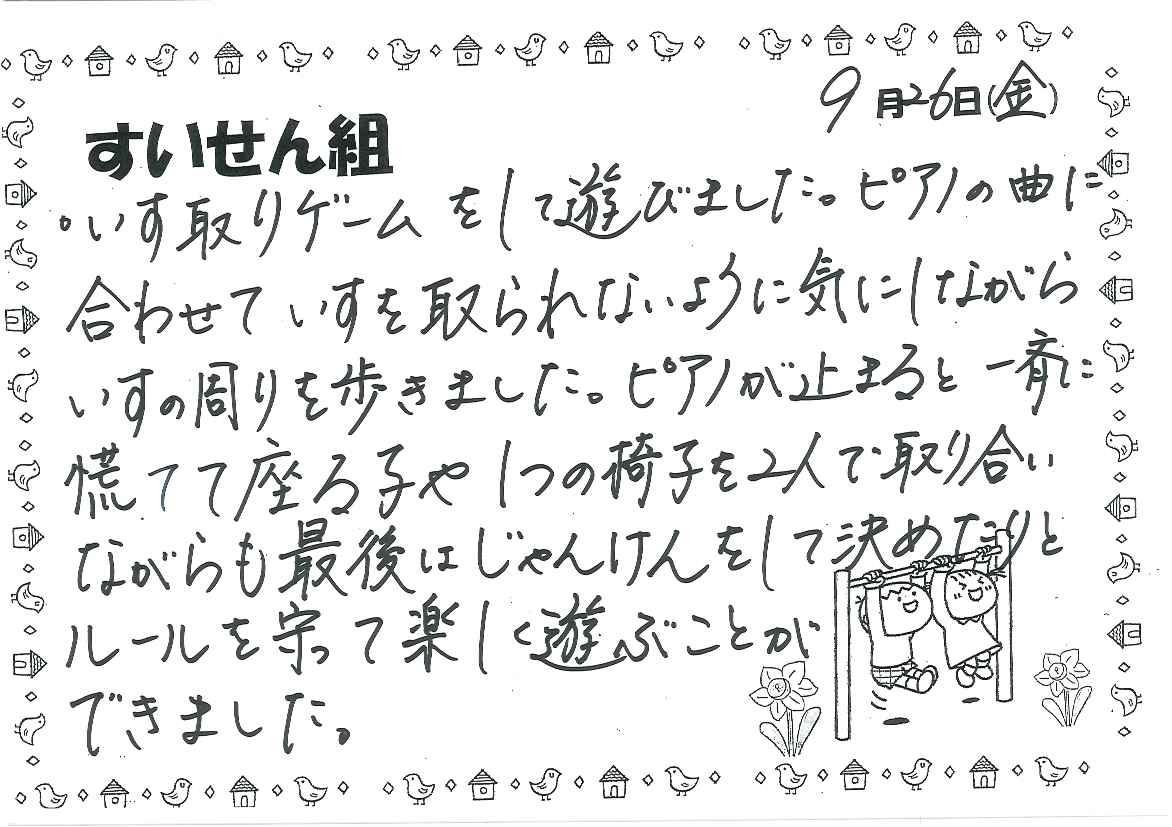 9月26日(金)
すいせん組
。いす取りゲームをして遊びました。ピアノの曲に
合わせていすを取られないように気にしながら
いすの周りを歩きました。ピアノが止まると一斉に
慌てて座る子や1つの椅子を2人で取り合い
ながらも最後はじゃんけんをして決めたりと
ルールを守って楽しく遊ぶことが
できました。